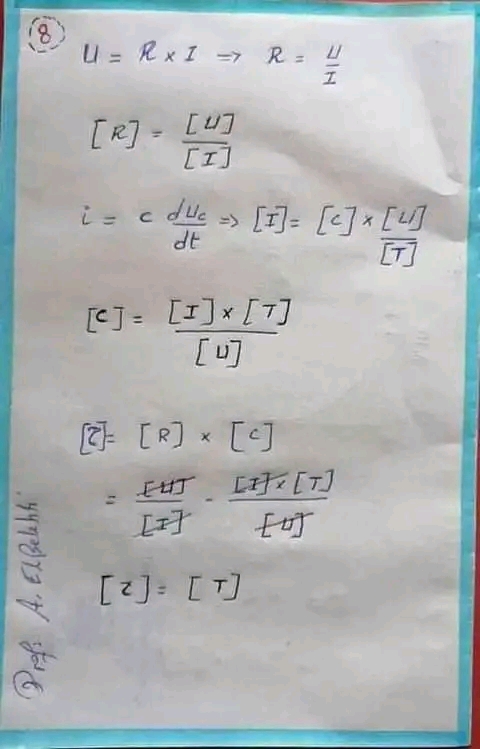 8
U = R × I => R = U/I
[R] = [U]/[I]
i = c duc/dt => [I] = [C] × [U]/[T]
[C] = [I] × [T]/[U]
[τ] = [R] × [C]
= [U]/[I] . [I] × [T]/[U]
[τ] = [T]
Prof: A. ElBekkhi